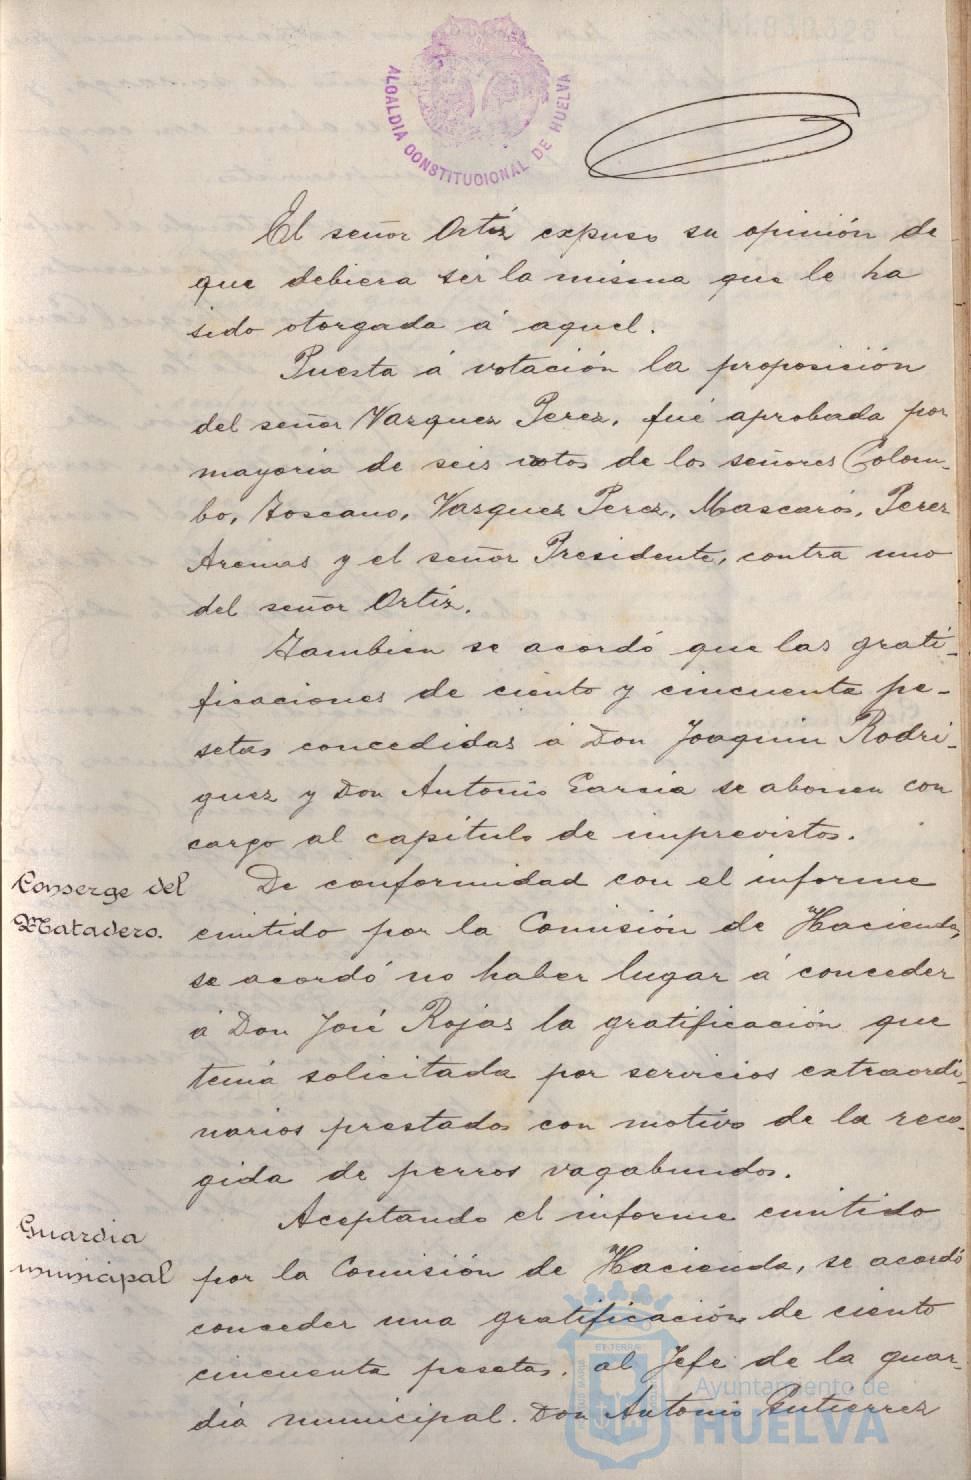 ALCALDIA CONSTITUCIONAL DE HUELVA
El señor Ortíz expuso su opinión de
que debiera ser la misma que le ha
sido otorgada á aquel.
Puesta á votación la proposición
del señor Vazquez Perez, fué aprobada por
mayoria de seis votos de los señores Colom-
bo, Toscano, Vazquez Perez, Mascarós, Perez
Arenas y el señor Presidente, contra uno
del señor Ortíz.
Tambien se acordó que las grati-
ficaciones de ciento y cincuenta pe-
setas concedidas á Don Joaquin Rodri-
guez y Don Antonio Garcia se abonen con
cargo al capítulo de imprevistos.
Conserge del
Matadero.
De conformidad con el informe
emitido por la Comisión de Hacienda,
se acordó no haber lugar á conceder
á Don José Rojas la gratificación que
tenia solicitada por servicios extraordi-
narios prestados con motivo de la reco-
gida de perros vagabundos.
Guardia
municipal
Aceptando el informe emitido
por la Comisión de Hacienda, se acordó
conceder una gratificación de ciento
cincuenta pesetas, al Jefe de la guar-
dia municipal. Don Antonio Gutierrez
Ayuntamiento de
HUELVA